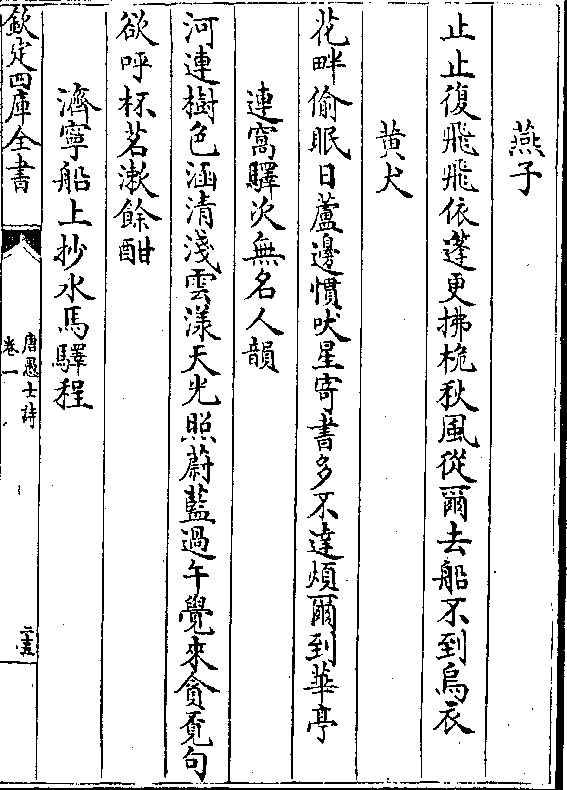 燕子
止止復飛飛依蓬更拂桅秋風從爾去船不到烏衣
黄犬
花畔偷眠日蘆邊慣吠星寄書多不達煩爾到華亭
連窩驛次無名人韻
河連樹色涵清淺雲漾天光照蔚藍過午覺來貪覔句
欲呼杯茗漱餘酣
濟寧船上抄水馬驛程
欽定四庫全書
唐愚士詩
卷一
二十五